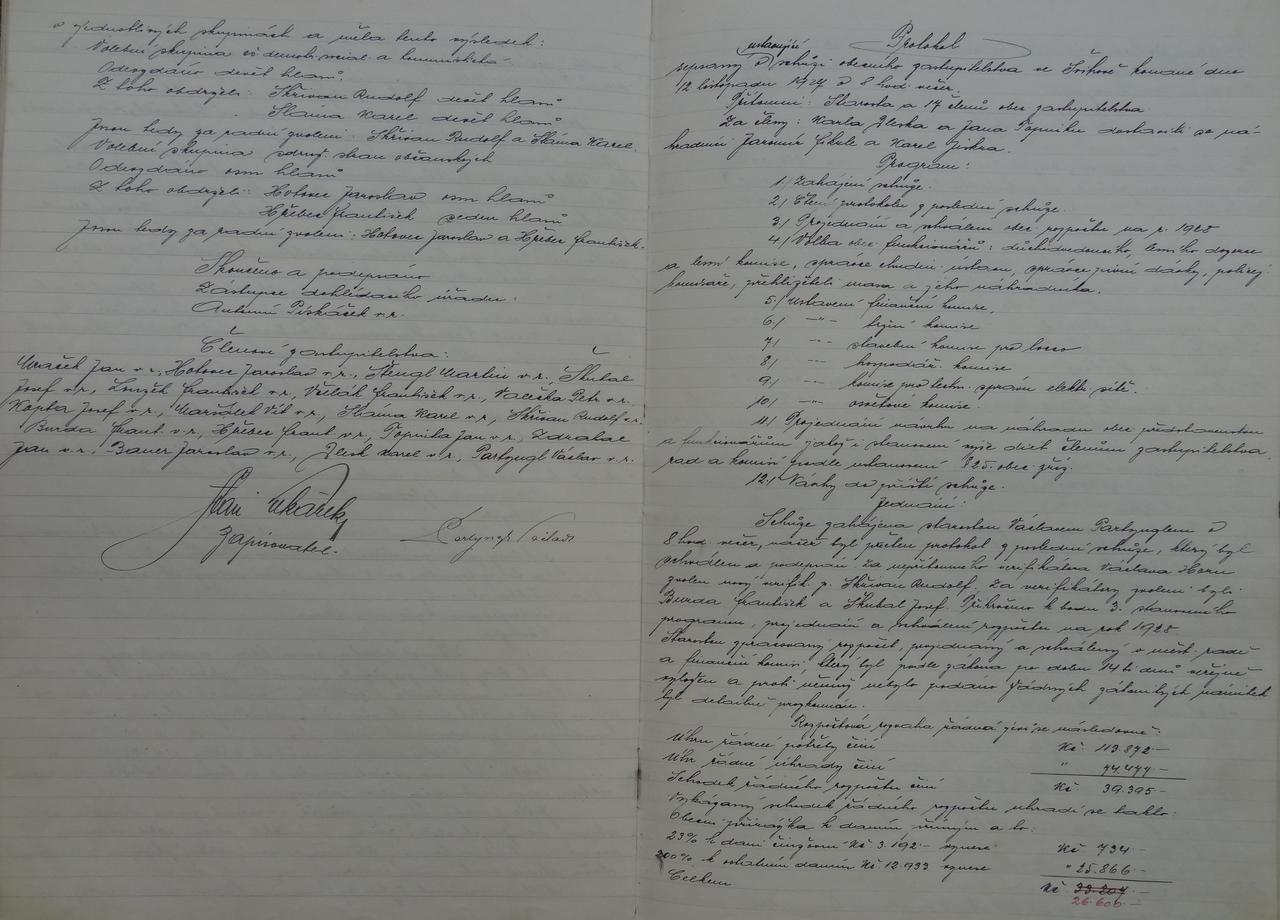 v jednotlivých skupinách a měla tento výsledek:
Volební skupina čs demok. social. a komunistická
Odevzdáno devět hlasů.
Z toho obdrželi: Skřivan Rudolf devět hlasů
Sláma Karel devět hlasů
Jsou tedy za radní zvoleni: Skřivan Rudolf a Sláma Karel.
Volební skupina sdruž. stran občanských
Odevzdáno osm hlasů
Z toho obdrželi: Hotovec Jaroslav osm hlasů
Hřebec František sedm hlasů
Jsou tedy za radní zvoleni: Hotovec Jaroslav a Hřebec František.
Skončeno a podepsáno
Zástupce dohlédacího úřadu:
Antonín Piskáček v.r.
Členové zastupitelstva:
Jan v.r., Hotovec Jaroslav v.r., Štengl Martin v.r., Škubal
Josef v.r., František v.r., František v.r., Valečka Petr v.r.
Kopta Josef v.r., Maršálek Vít v.r., Sláma Karel v.r., Skřivan Rudolf v.r.
Burda Frant. v.r., Hřebec Frant. v.r., Topinka Jan v.r., Zdrahal
Jan v.r., Bauer Jaroslav v.r., Karel v.r., Partyngl Václav v.r.
Jan
Zapisovatel.
Partyngl Václav
Protokol
ustavující
sepsaný o schůzi obecního zastupitelstva ve dne
1/2 listopadu 1927 o 8 hod. večer.
Přítomni: Starosta a 17 členů obec. zastupitelstva.
Za členy: Karla a Jana Topinku dostavili se ná-
hradníci Jaromír a Karel Jiskra.
Program:
1./ Zahájení schůze.
2./ Čtení protokolu z poslední schůze.
3./ Projednání a schválení obec. rozpočtu na r. 1928
4./ Volba obec. funkcionářů: důchodvedoucího, lesního dozorce
a lesní komise, správce chudin. ústavu, správce pivní dávky, policej.
komisaře, přehlížitele masa a jeho náhradníka.
5./ Ustavení finanční komise,
6./ -"- komise
7./ -"- stavební komise pro
8./ -"- hospodář. komise
9./ -"- komise pro techn. správu elektr. sítě.
10./ -"- osvětové komise.
11./ Projednání návrhu na náhradu obec. představenstvu
a funkcionářům jakož i stanovení výše diet členům zastupitelstva,
rad a komisí podle ustanovení § 25. obec. zříz.
12./ Návrhy do příští schůze.
Jednání:
Schůze zahájena starostou Václavem Partynglem o
8 hod. večer, načež byl přečten protokol z poslední schůze, který byl
schválen a podepsán. Za nepřítomného verifikátora Václava Horu
zvolen nový verifik. p. Skřivan Rudolf. Za verifikátory zvoleni byli:
Burda František a Škubal Josef. Přikročeno k bodu 3. stanoveného
programu, projednání a schválení rozpočtu na rok 1928.
Starostou zpracovaný rozpočet, projednaný a schválený v měst. radě
a finanční komisi, který byl podle zákona po dobu 14ti dnů veřejně
vyložen a proti němuž nebylo podáno žádných zákonitých námitek
byl detailně prozkoumán.
Rozpočtová rozvaha řádná jeví se následovně:
Úhrn řádné potřeby činí Kč 113.872.-
Úhr. řádné úhrady činí " 74.477.-
Schodek řádného rozpočtu činí Kč 39.395.-
Vykázaný schodek řádného rozpočtu uhradí se takto:
Obecní přirážka k daním přímým a to:
23% k dani činžovní Kč 3.192.- vynese Kč 734.-
200% k ostatním daním Kč 12.933 vynese " 25.866.-
Celkem Kč 33.207.-
26.600.-